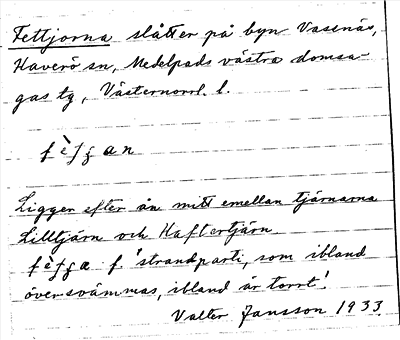 Fettjorna slåtter på byn Vassnäs,
Haverö sn, Medelpads västra domsa-
gas tg, Västernorrl. l.
fè̀ʃʒan
Ligger efter ån mitt emellan tjärnarna
Lilltjärn och Haftertjärn
fè̀ʃʒa f. 'strandparti, som ibland
översvämmas, ibland är torrt'.
Valter Jansson 1933